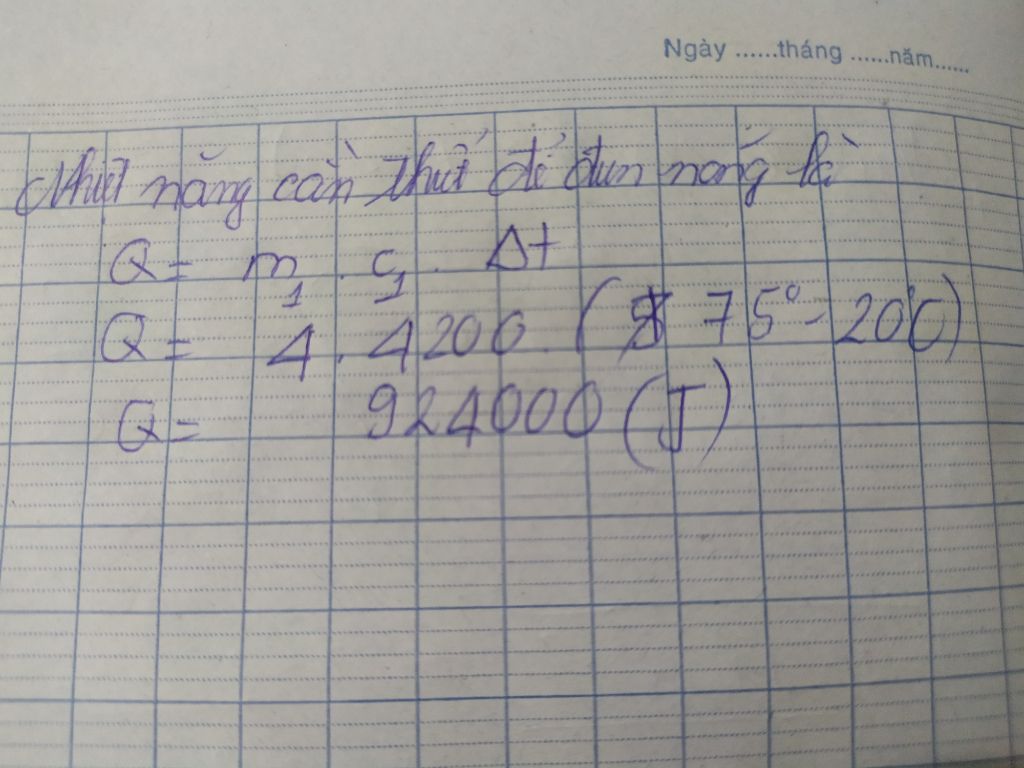 Ngày ......tháng ......năm......
Nhiệt năng cần thiết để đun nóng là
Q = m₁ . c₁ . Δt
Q = 4 . 4200 . ( 75° - 20°C)
Q = 924000 (J)